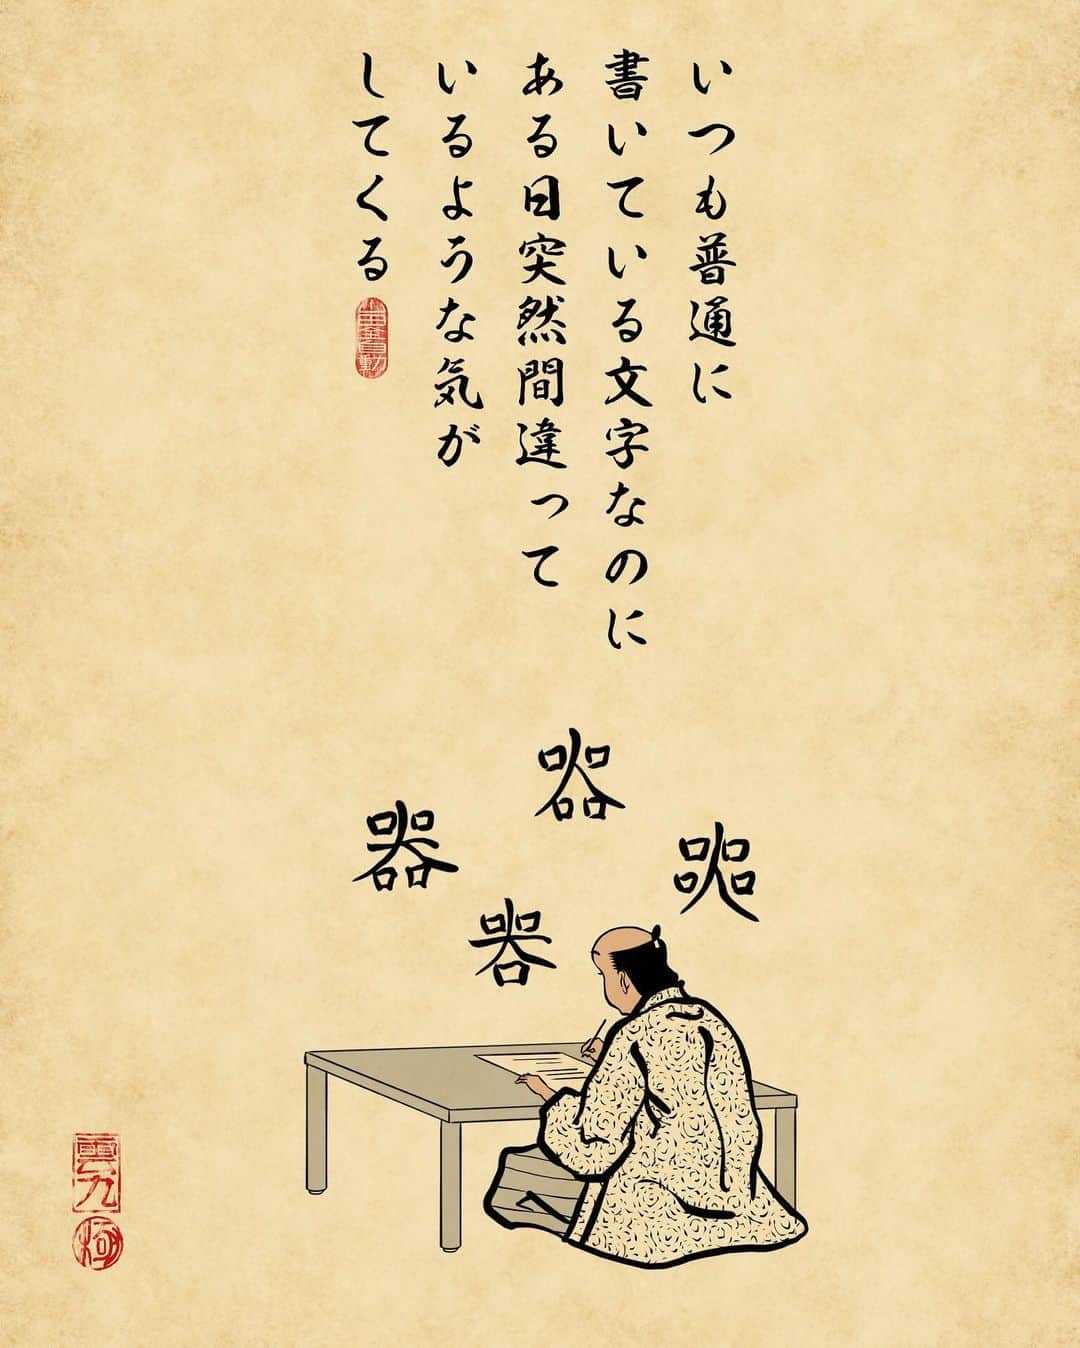 いつも普通に
書いている文字なのに
ある日突然間違って
いるような気が
してくる